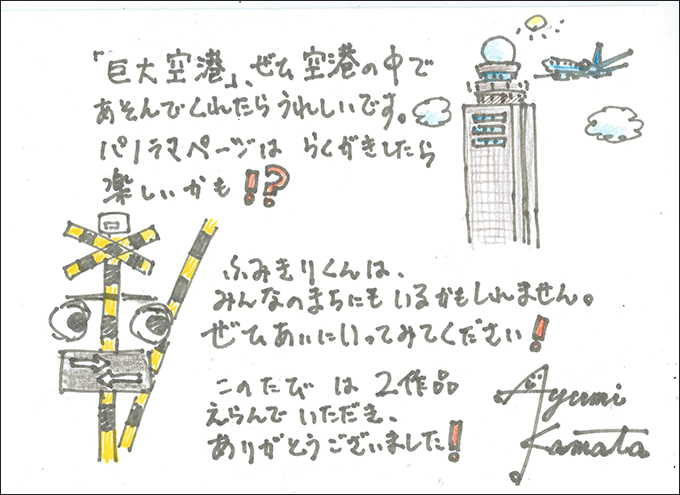 「巨大空港」、ぜひ空港の中で
あそんでくれたらうれしいです。
パノラマページは らくがきしたら
楽しいかも!?
ふみきりくんは、
みんなのまちにもいるかもしれません。
ぜひあいにいってみてください!
このたびは2作品
えらんでいただき、
ありがとうございました!
Ayumi
Kamata